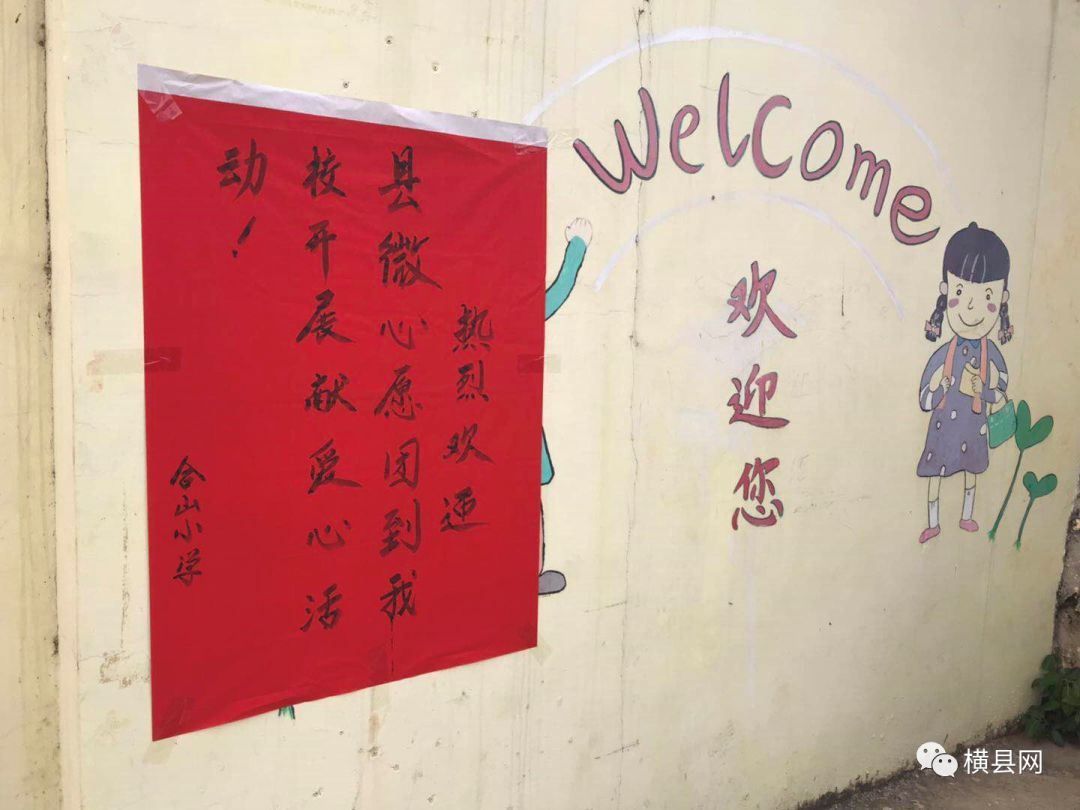 热烈欢迎
县微心愿团到我
校开展献爱心活
动！
合山小学
Welcome
欢迎您
横县网